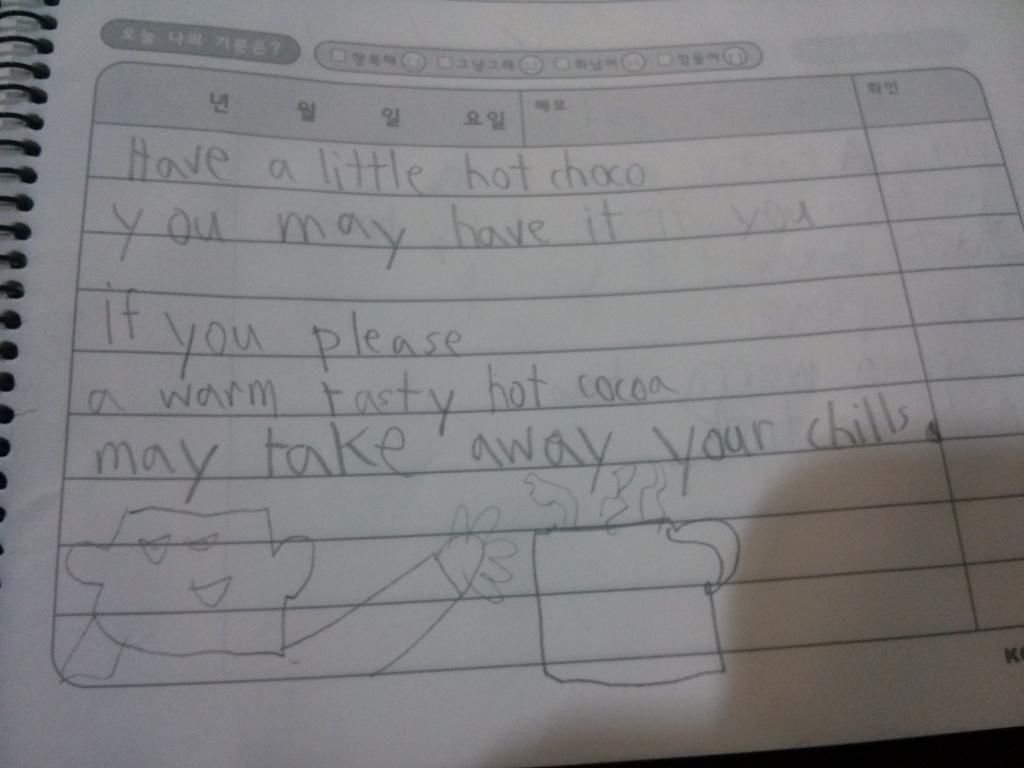 오늘 나의 기분은?
행복해 그냥그래 화났어 힘들어
년 월 일 요일 메모 확인
Have a little hot choco
you may have it if you
if you please
a warm tasty hot cocoa
may take away your chills.